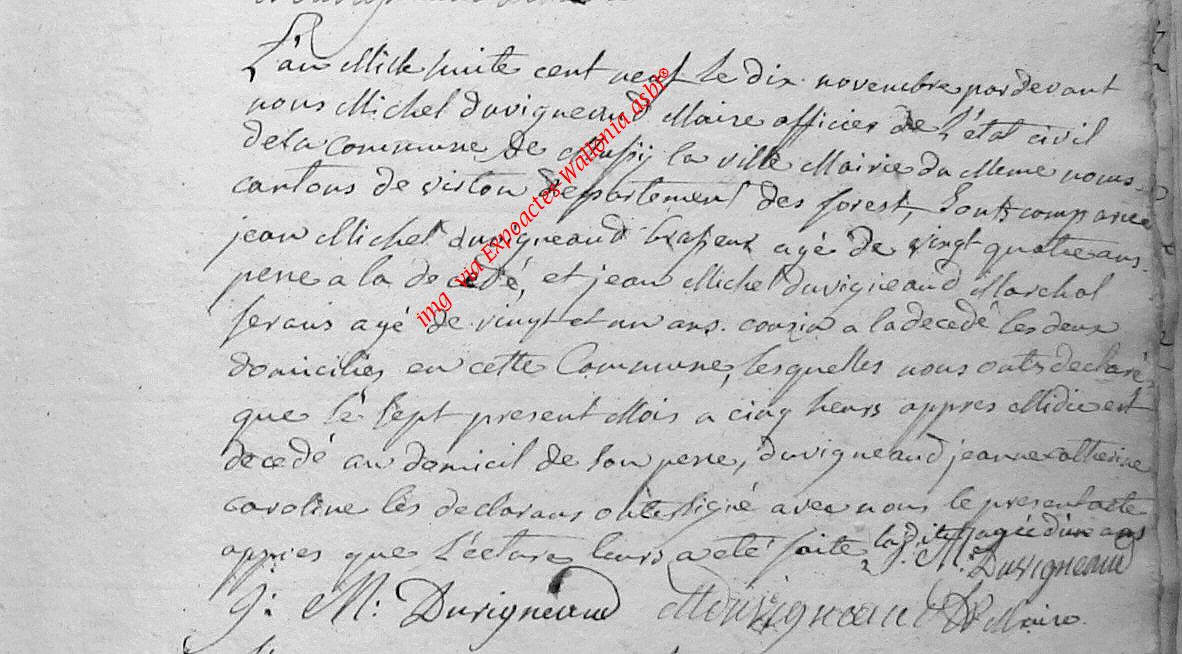 L'an Mille huite cent neuf le dix novembre pardevant
nous Michel Duvigneaud Maire officier de L'état civil
de la commune de la ville Mairie du Meme nous
cantons de virton departement des forest, Sonts comparue
jean Michel duvigneaud brasseur agé de vingt quatre ans
perre a la decedé, et jean Michel duvigneaud Marchal
ferans agé de vingt et un ans. cousin a la decedé les deux
domiciliés en cette Commune, lesquelles nous onts declaré
que le Sept present Mois a cinq heurs appres Midie est
decedé au domicil de Son perre, duvigneaud jeanne catherine
caroline les declarans onts Signé avec nous le present acte
appres que Lecture leurs a eté faite ladite agée d'un ans
J. M. Duvigneaud
J: M: Duvigneaud MDuvigneaud Maire
img via Expoactes Wallonia asbl®